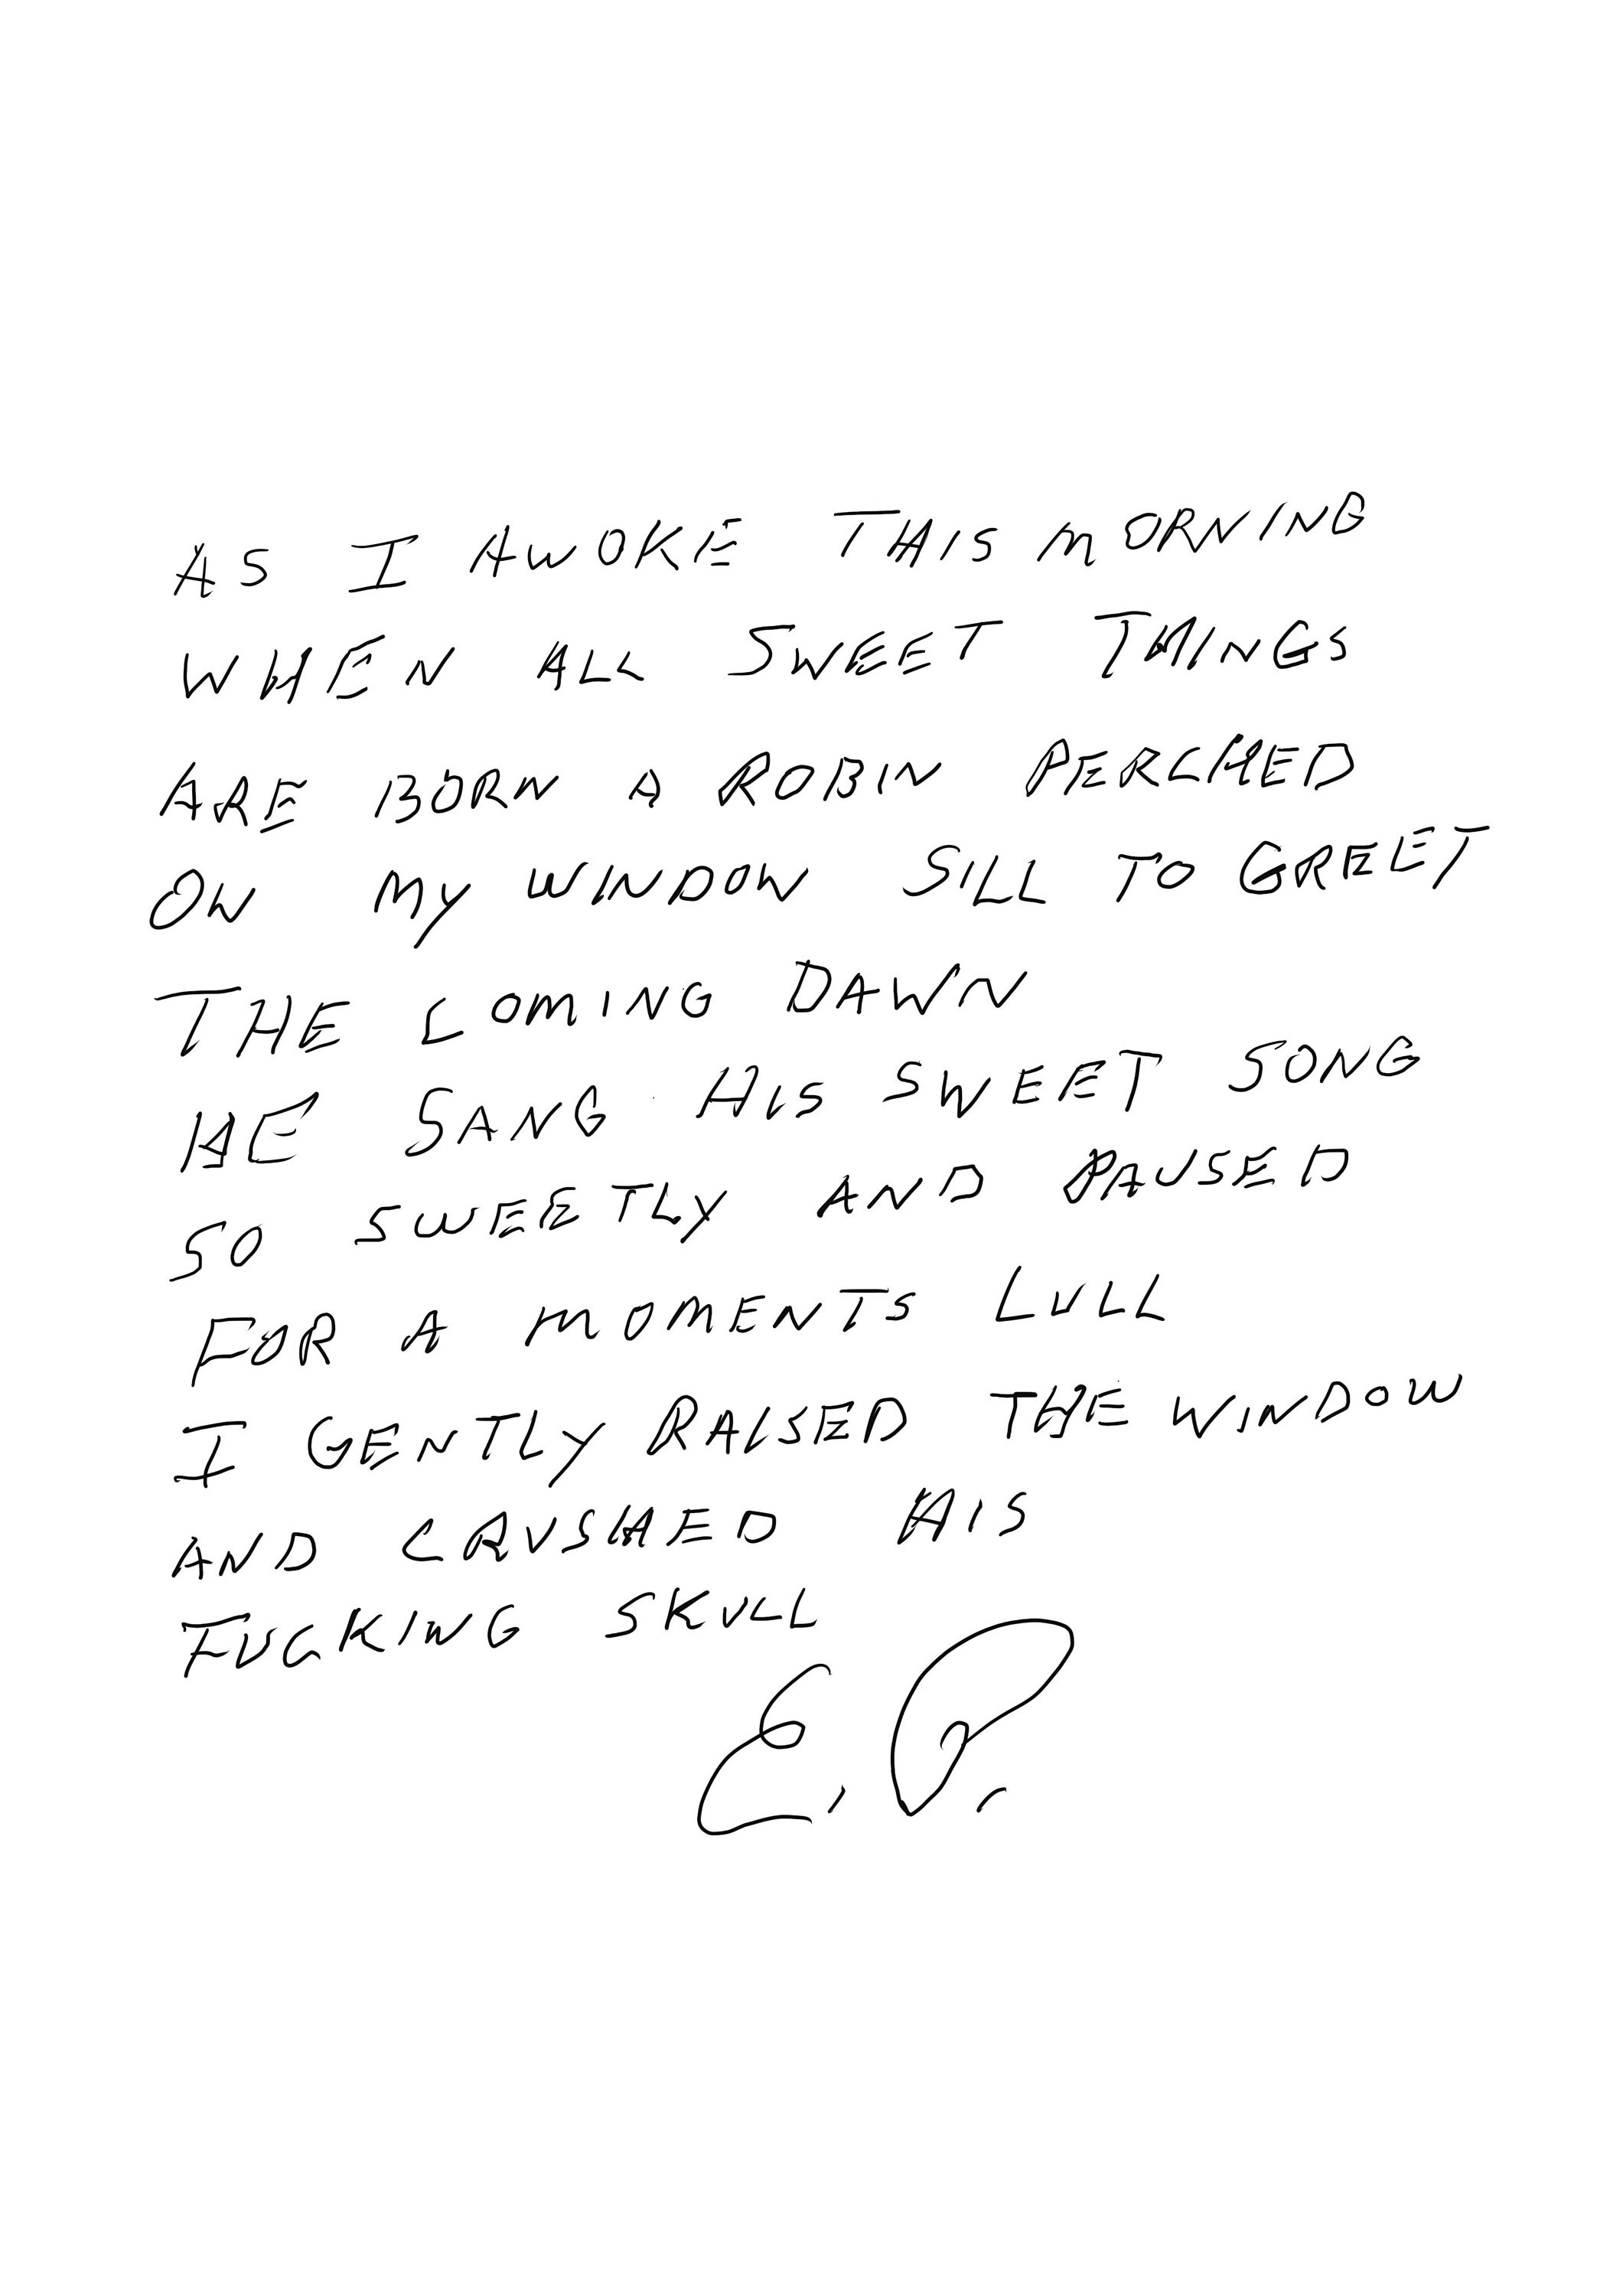 AS I AWOKE THIS MORNING
WHEN ALL SWEET THINGS
ARE BORN A ROBIN PERCHED
ON MY WINDOW SILL TO GREET
THE COMING DAWN
HE SANG HIS SWEET SONG
SO SWEETLY AND PAUSED
FOR A MOMENTS LULL
I GENTLY RAISED THE WINDOW
AND CRUSHED HIS
FUCKING SKULL
E.P.